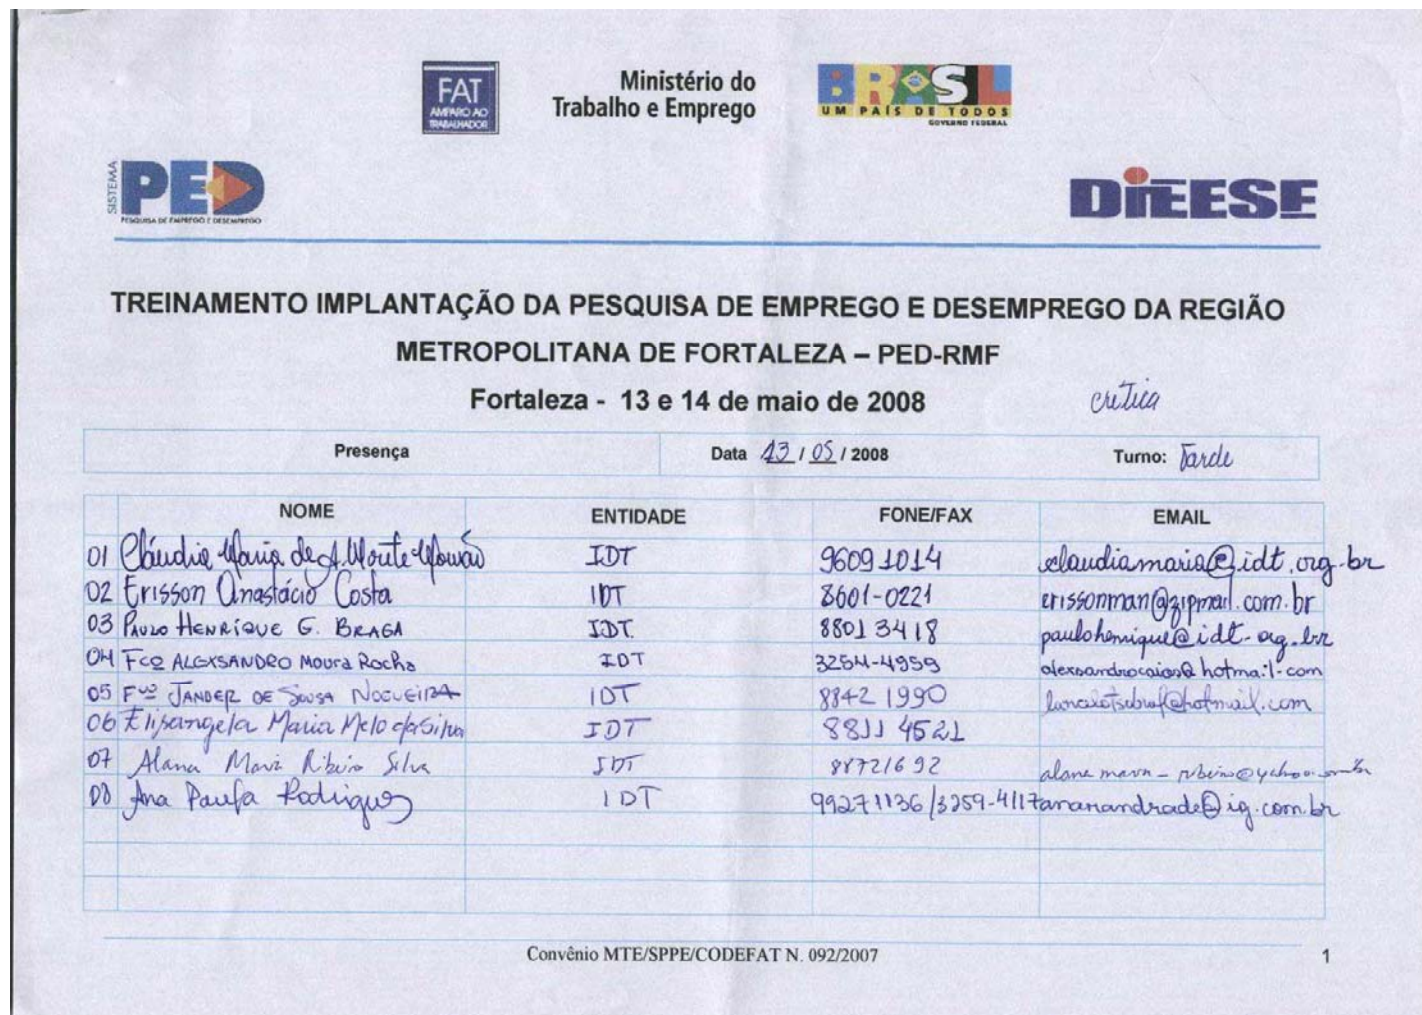 FAT
AMPARO AO
TRABALHADOR
Ministério do
Trabalho e Emprego
BRASIL
UM PAÍS DE TODOS
GOVERNO FEDERAL
SISTEMA
PED
PESQUISA DE EMPREGO E DESEMPREGO
DIEESE
TREINAMENTO IMPLANTAÇÃO DA PESQUISA DE EMPREGO E DESEMPREGO DA REGIÃO
METROPOLITANA DE FORTALEZA – PED-RMF
Fortaleza - 13 e 14 de maio de 2008 crítica
Presença Data 13 / 05 / 2008 Turno: Tarde
NOME ENTIDADE FONE/FAX EMAIL
01 Cláudia Maria de A. Monte Mourão IDT 96091014 claudiamaria@idt.org.br
02 Erisson Anastácio Costa IDT 8601-0221 erissonman@zipmail.com.br
03 PAULO HENRIQUE G. BRAGA IDT. 88013418 paulohenrique@idt.org.br
04 Fco ALEXSANDRO Moura Rocha IDT 3254-4959 alexsandrocaios@hotmail.com
05 Fco JANDER DE SOUSA NOGUEIRA IDT 8842 1990
06 Elisangela Maria Melo da Silva IDT 8811 4521
07 Alana Mara Ribeiro Silva IDT 88721692
08 Ana Paula Rodrigues IDT 99271136/3259-4117 anariandrade@ig.com.br
Convênio MTE/SPPE/CODEFAT N. 092/2007 1